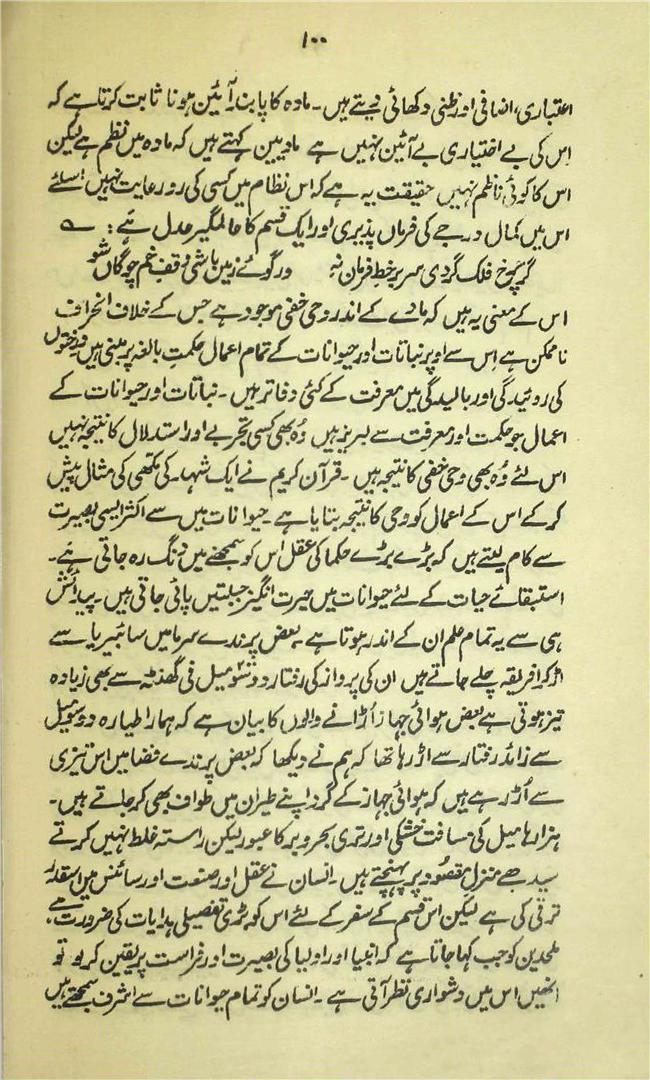 ۱۰۰
اعتباری، اضافی اور ظنی دکھائی دیتے ہیں۔ مادہ کا پابند آئین ہونا ثابت کرتا ہے کہ
اس کی بے اختیاری بے آئین نہیں ہے مادیین کہتے ہیں کہ مادہ میں نظم ہے لیکن
اس کا کوئی ناظم نہیں حقیقت یہ ہے کہ اس نظام میں کسی کی رو رعایت نہیں اسلئے
اس میں کمال درجے کی فرماں پذیری اور ایک قسم کا عالمگیر عدل ہے :
گر چرخ فلک گردی سر بر خط فرماں نہ در گوئے زمیں باشی وقف خم چوگاں شو
اس کے معنی یہ ہیں کہ مادے کے اندر وحی خفی موجود ہے جس کے خلاف انحراف
ناممکن ہے اس سے اوپر نباتات اور حیوانات کے تمام اعمال حکمتِ بالغہ پر مبنی ہیں
کی روئیدگی اور بالیدگی میں معرفت کے کئی دفاتر ہیں۔ نباتات اور حیوانات کے
اعمال جو حکمت اور معرفت سے لبریز ہیں وُہ بھی کسی تجربے اور استدلال کا نتیجہ نہیں
اس لئے وُہ بھی وحی خفی کا نتیجہ ہیں۔ قرآن کریم نے ایک شہد۔ کی مکھی کی مثال پیش
کر کے اس کے اعمال کو وحی کا نتیجہ بتایا ہے۔ حیوانات میں سے اکثر ایسی بصیرت
سے کام لیتے ہیں کہ بڑے بڑے حکما کی عقل اس کو سمجھنے میں دنگ رہ جاتی ہے۔
استبقائے حیات کے لئے حیوانات میں حیرت انگیز جبلتیں پائی جاتی ہیں۔ پیدائش
ہی سے یہ تمام علم ان کے اندر ہوتا ہے۔ بعض پرندے سرما میں سائبیریا سے
اڑ کر افریقہ چلے جاتے ہیں ان کی پرواز کی رفتار دو سو میل فی گھنٹہ سے بھی زیادہ
تیز ہوتی ہے بعض ہوائی جہاز اُڑانے والوں کا بیان ہے کہ ہمارا طیارہ دو سو میل
سے زائد رفتار سے اڑ رہا تھا کہ ہم نے دیکھا کہ بعض پرندے فضا میں اس تیزی
سے اُڑ رہے ہیں کہ ہوائی جہاز کے گرد اپنے طیران میں طواف بھی کر جاتے ہیں۔
ہزارہا میل کی مسافت خشکی اور تری بحر و بر کا عبور لیکن راستہ غلط نہیں کرتے
سیدھے منزل مقصُود پر پہنچتے ہیں۔ انسان نے عقل اور صنعت اور سائنس میں اسقدر
ترقی کی ہے لیکن اس قسم کے سفر کے لئے اس کو بڑی تفصیلی ہدایات کی ضرورت ہے،
ملحدین کو جب کہا جاتا ہے کہ انبیا اور اولیا کی بصیرت اور فراست پر یقین کر لو تو
انھیں اس میں دشواری نظر آتی ہے۔ انسان کو تمام حیوانات سے اشرف سمجھتے ہیں